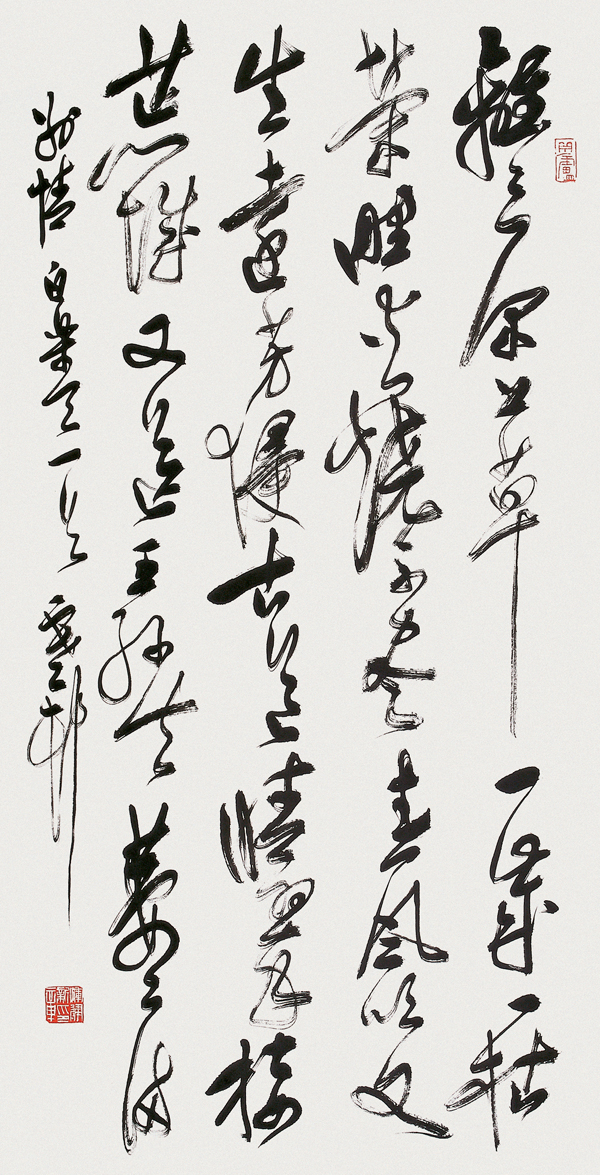 離〻原上草一歲一枯
榮野火燒不盡春風吹又
生遠芳侵古道晴翠接
荒城又送王孫去萋〻滿
別情 白樂天一首